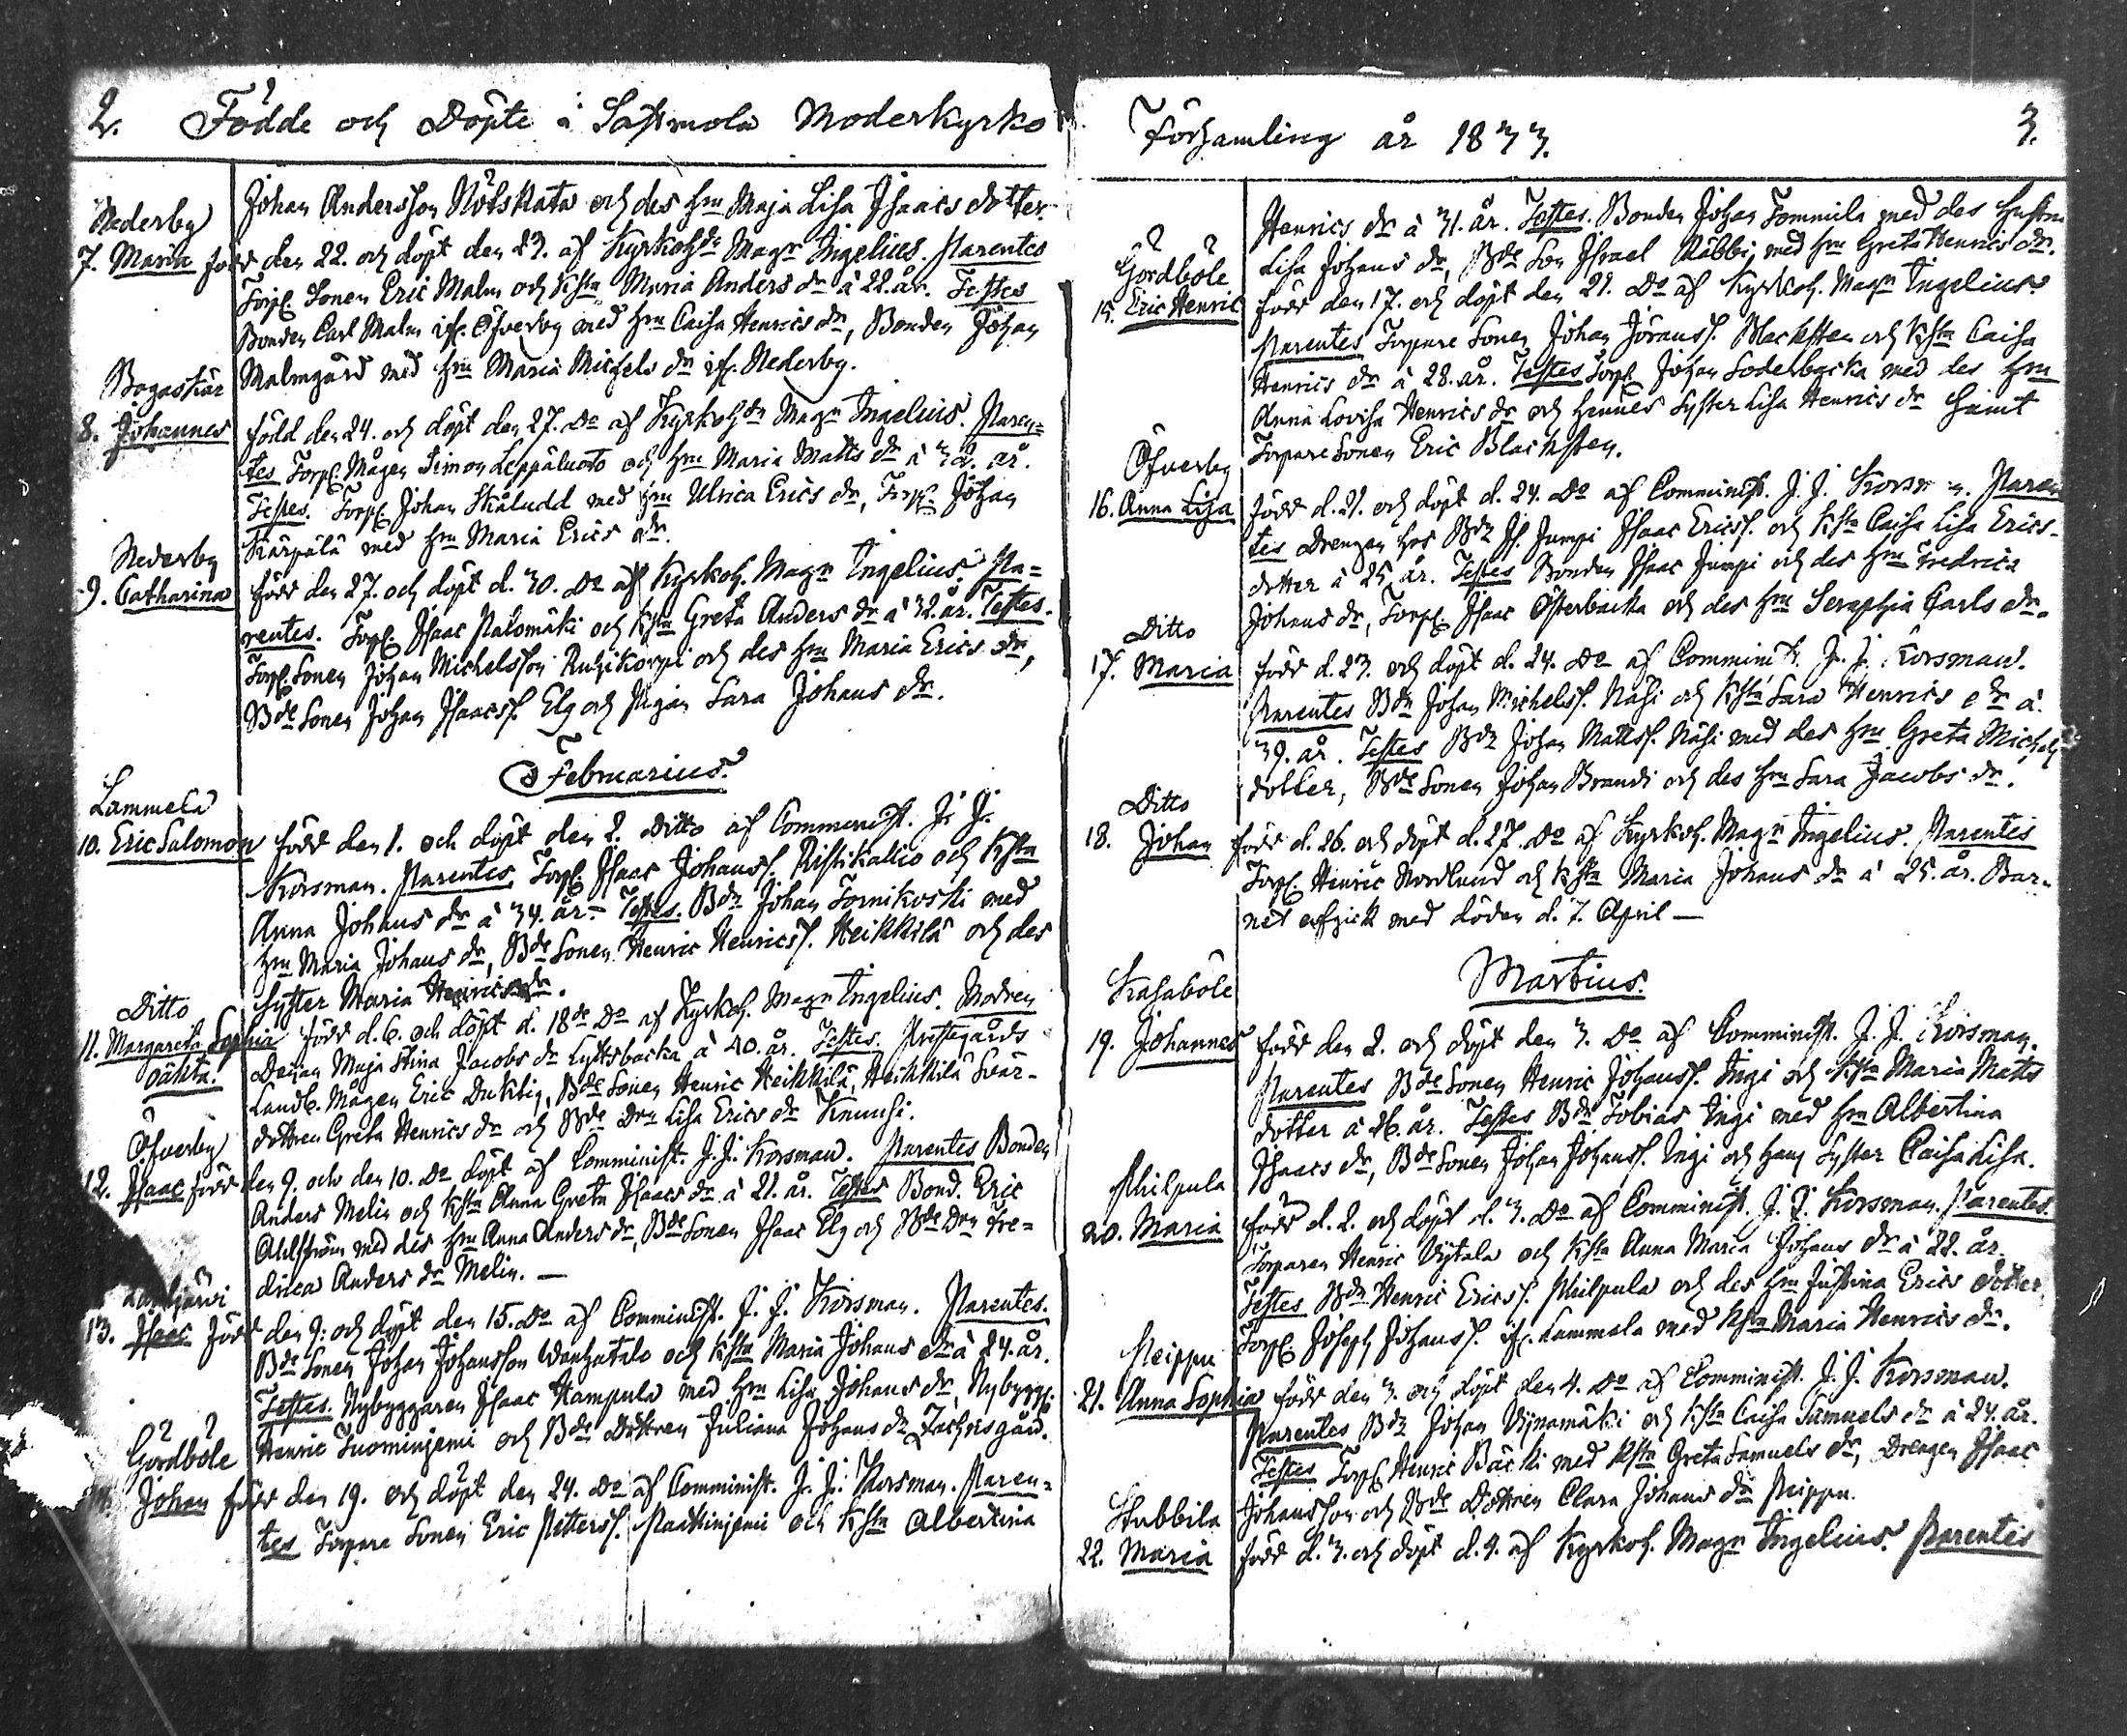 2. Födde och Döpte i Sastmola Moderkyrko
Johan Andersson Nötskata och des Hru Maja Lisa Isaacs dotter
Nederby
7. Maria född den 22. och döpt den 23. af Kyrkohdn Magr Ingelius. Parentes
Torp. Sonen Eric Malm och hsta Maria Anders dr à 22. år. Testes
Bonden Carl Malm ifr. Öfverby med Hru Caisa Henrics dr, Bonden Johan
Malmgård med Hru Maria Michels dr ifr. Nederby.
Bogaskär
8. Johannes född den 24. och döpt den 27. do af Kyrkohdn Magr Ingelius. Paren=
tes Torp. Mågen Simon Leppäluoto och Hru Maria Matts dr à 32. år.
Testes. Torp. Johan Skåludd med Hru Ulrica Erics dr, Torp. Johan
Kärpälä med Hru Maria Erics dr.
Nederby
9. Catharina född den 27. och döpt d. 30. do af Kyrkoh. Magr Ingelius. Pa=
rentes. Torp. Isaac Palomäki och hsta Greta Anders dr à 32. år. Testes.
Torp. Sonen Johan Michelsson Ruhikorpi och des Hru Maria Erics dr,
Bde Sonen Johan Isaacss. Elg och Pigan Sara Johans dr.
Februarius.
Lammela
10. Eric Salomon född den 1. och döpt den 2. Ditto af Comminist. J. J.
Korsman. Parentes. Torp. Isaac Johanss. Ristikallio och hsta
Anna Johans dr à 34. år. Testes. Bdn Johan Tornikoski med
Hru Maria Johans dr, Bde Sonen Henric Henricss. Heikkilä och des
Syster Maria Henrics dr.
Ditto
11. Margareta Sophia född d. 6. och döpt d. 18de do af Kyrkoh. Magr Ingelius. Modren
oäkta. Deijan Maja Stina Jacobs dr Lyttsbacka à 40. år. Testes. Prestegårds
Landb. Mågen Eric Duktig, Bde Sonen Henric Heikkilä, Heikkilä Svär-
dottren Greta Henrics dr och Bde Drn Lisa Erics dr Knuusi.
Öfverby
12. Isaac född den 9. och den 10. do döpt af Comminist. J. J. Korsman. Parentes Bonden
Anders Melin och hsta Anna Greta Isaacs dr à 21. år. Testes Bond. Eric
Ahlström med des Hru Anna Anders dr, Bde Sonen Isaac Elg och Bde Drn Fre=
drica Anders dr Melin. —
13. Isaac född den 9. och döpt den 15. do af Comminist. J. J. Korsman. Parentes.
Bde Sonen Johan Johansson Wanhatalo och hsta Maria Johans dr à 24. år.
Testes. Nybyggaren Isaac Hampula med Hru Lisa Johans dr, Nybygg.
Henric Tuominjemi och Bde Dottren Juliana Johans dr Zachrisgård.
Gördböle
Johan född den 19. och döpt den 24. do af Comminist. J. J. Korsman. Paren=
tes Torpare Sonen Eric Petterss. Paakinjemi och hsta Albertina
Församling år 1833. 3.
Henrics dr à 31. år. Testes. Bonden Johan Tommila med des Hustru
Lisa Johans dr, Bde Son Israel Råbbi, med Hru Greta Henrics dr.
Gördböle
15. Eric Henric född den 17. och döpt den 21. do af Kyrkoh. Magr Ingelius.
Parentes Torpare Sonen Johan Jöranss. Blecksten och hsta Caisa
Henrics dr à 28. år. Testes Torp. Johan Söderbacka med des Hru
Anna Lovisa Henrics dr och Hennes Syster Lisa Henrics dr samt
Torpare Sonen Eric Blacksten.
Öfverby
16. Anna Lisa född d. 21. och döpt d. 24. do af Comminist. J. J. Korsman. Paren
tes Drengen hos Bdn Is. Jumpi Isaac Ericss. och hsta Caisa Lisa Erics-
dotter à 25 år. Testes Bonden Isaac Jumpi och des Hru Fredrica
Johans dr, Torp. Isaac Österbacka och des Hru Seraphia Carls dr.
Ditto
17. Maria född d. 23. och döpt d. 24. do af Comminist. J. J. Korsman.
Parentes Bdn Johan Michelss. Näsi och hsta Sara Henrics dr à
39. år. Testes Bdn Johan Mattss. Näsi med des Hru Greta Michels
dotter, Bde Sonen Johan Brandi och des Hru Sara Jacobs dr.
Ditto
18. Johan född d. 26. och döpt d. 27. do af Kyrkoh. Magr Ingelius. Parentes
Torp. Henric Nordlund och hsta Maria Johans dr à 25. år. Bar-
net afgick med döden d. 7. April —
Martius.
Kasaböle
19. Johannes född den 2. och döpt den 3. do af Comminist. J. J. Korsman.
Parentes Bde Sonen Henric Johanss. Ingi och hsta Maria Matts
dotter à 26. år. Testes Bdn Tobias Ingi med Hru Albertina
Isaacs dr, Bde Sonen Johan Johanss. Ingi och hans Syster Caisa Lisa.
Philpula
20. Maria född d. 2. och döpt d. 3. do af Comminist. J. J. Korsman. Parentes.
Torparen Henric Uijtala och hsta Anna Maria Johans dr à 22. år.
Testes Bdn Henric Ericss. Philpula och des Hru Justina Erics dotter
Torp. Joseph Johanss. ifr. Lammela med hsta Maria Henrics dr.
Peippu
21. Anna Sophia född den 3. och döpt den 4. do af Comminist. J. J. Korsman.
Parentes Bdn Johan Vijnamäki och hsta Caisa Samuels dr à 24. år.
Testes Torp. Henric Bäcki med hsta Greta Samuels dr, Drengen Isaac
Johansson och Bde Dottren Clara Johans dr Peippu.
Stubbila
22. Maria född d. 3. och döpt d. 9. af Kyrkoh. Magr Ingelius. Parentes